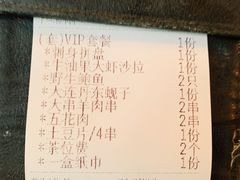 (套)VIP套餐 1份
*刺身拼盘 1份
*牛油果大虾沙拉 1份
*野生鲍鱼 2只
*大连丹东蚬子 1份
*大串羊肉串 2串
*五花肉 2串
*土豆片/4串 1份
*茶位费 2个
*一盒纸巾 1份